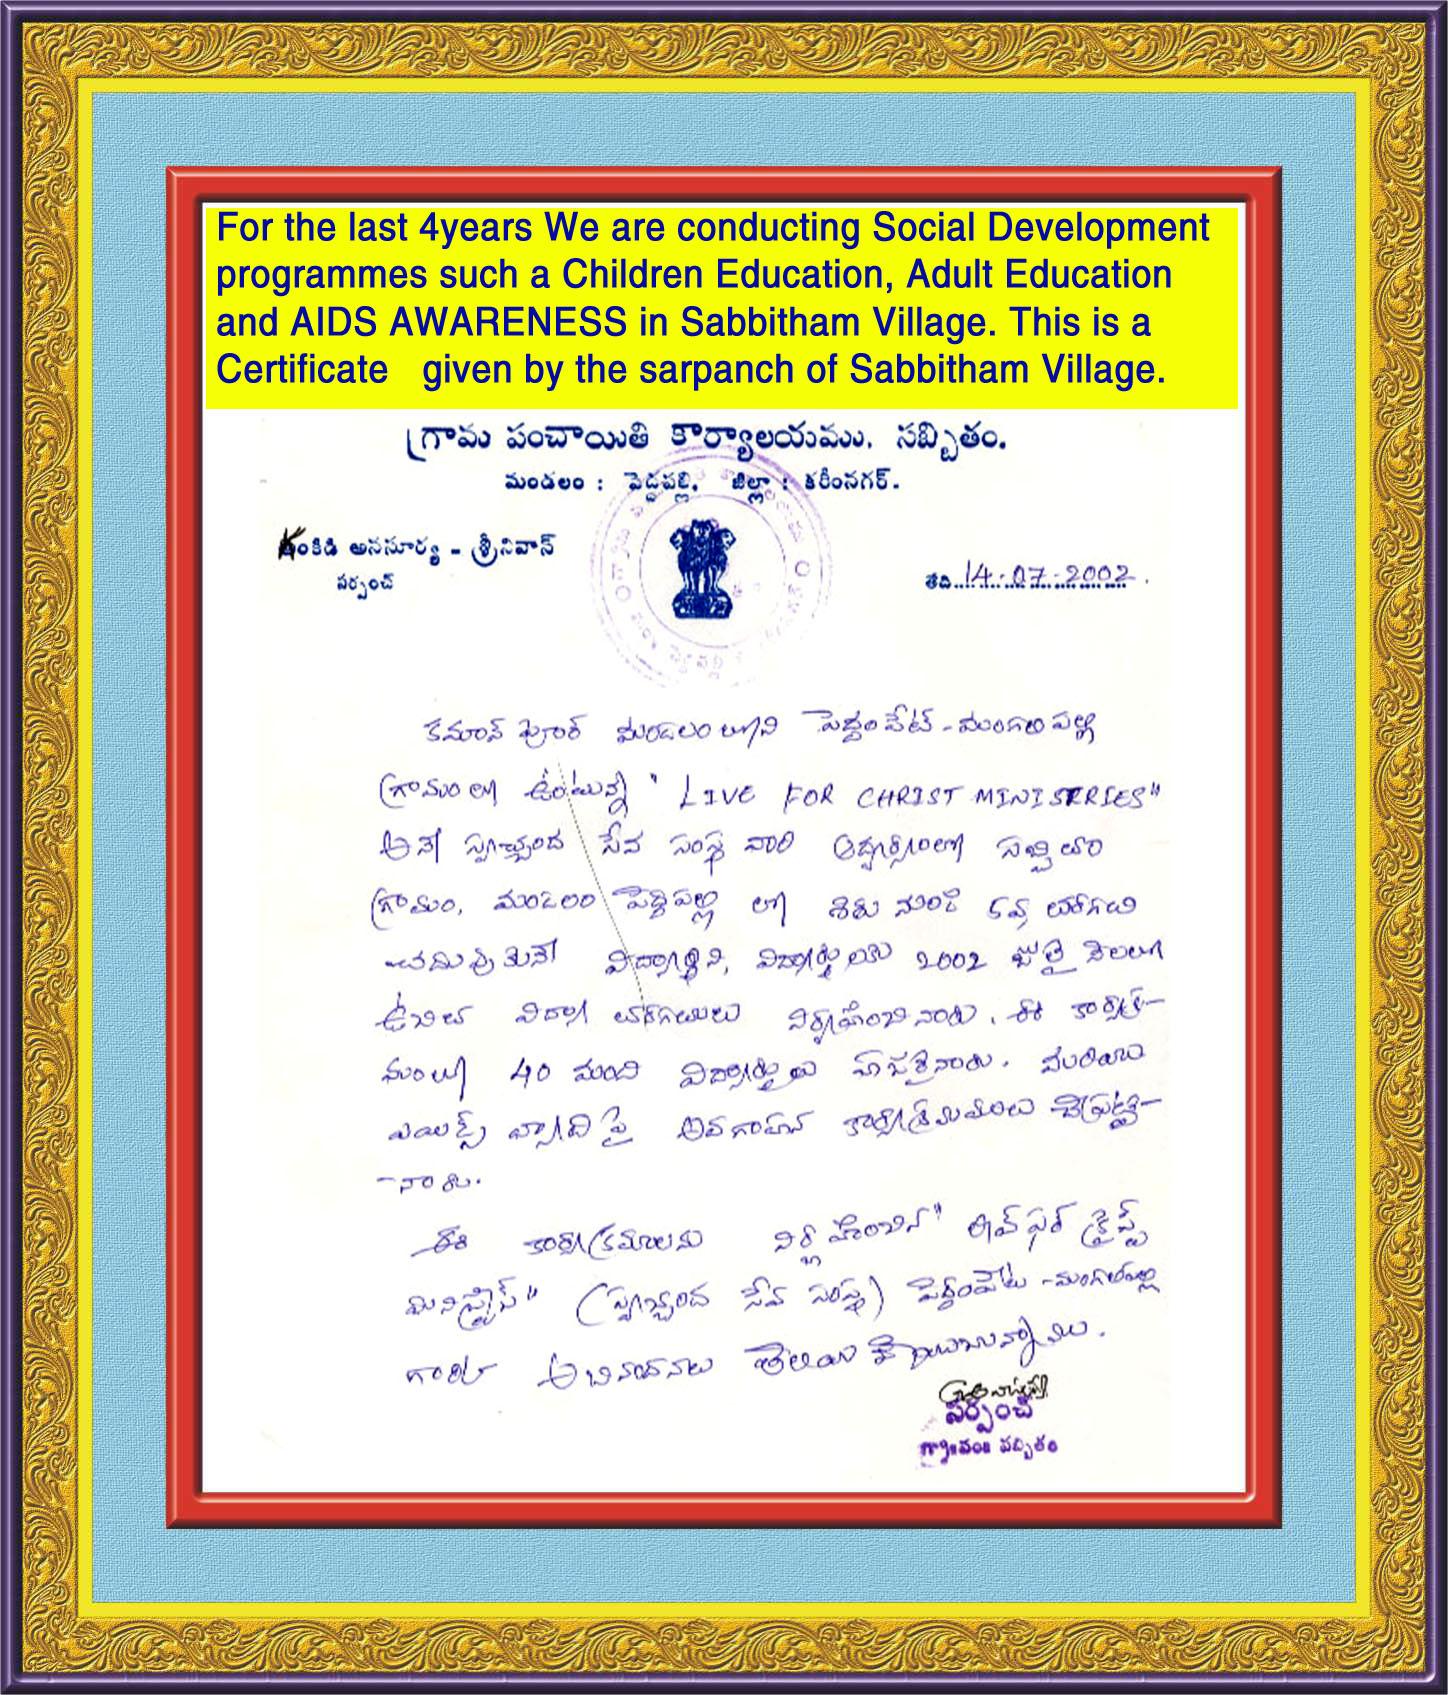 For the last 4years We are conducting Social Development
programmes such a Children Education, Adult Education
and AIDS AWARENESS in Sabbitham Village. This is a
Certificate given by the sarpanch of Sabbitham Village.
గ్రామ పంచాయితి కార్యాలయము, సబ్బితం.
మండలం : పెద్దపల్లి, జిల్లా : కరీంనగర్.
అనసూర్య - శ్రీనివాస్
సర్పంచ్
తేది 14-07-2002.
కమాన్ పూర్ మండలంలోని పెద్దంపేట్ - మంగళపల్లి
గ్రామంలో ఉంటున్న "LIVE FOR CHRIST MINISTRIES"
అనే స్వచ్ఛంద సేవ సంస్థ వారి ఆధ్వర్యంలో సబ్బితం
గ్రామం, మండలం పెద్దపల్లి లో శిశు నుండి 5వ తరగతి
చదువుతున్న విద్యార్థిని, విద్యార్థులకు 2002 జులై నెలలో
ఉచిత విద్యా తరగతులు నిర్వహించినారు. ఈ కార్యక్ర-
మంలో 40 మంది విద్యార్థులు హాజరైనారు. మరియు
ఎయిడ్స్ వ్యాధి పై అవగాహన కార్యక్రమములు చేపట్టి-
-నారు.
ఈ కార్యక్రమాలను నిర్వహించిన "లివ్ ఫర్ క్రైస్ట్
మినిస్ట్రీస్" (స్వచ్ఛంద సేవ సంస్థ) పెద్దంపేట - మంగళపల్లి
గారికి అభినందనలు తెలియజేయుచున్నాము.
సర్పంచ్
గ్రా॥పం॥ సబ్బితం